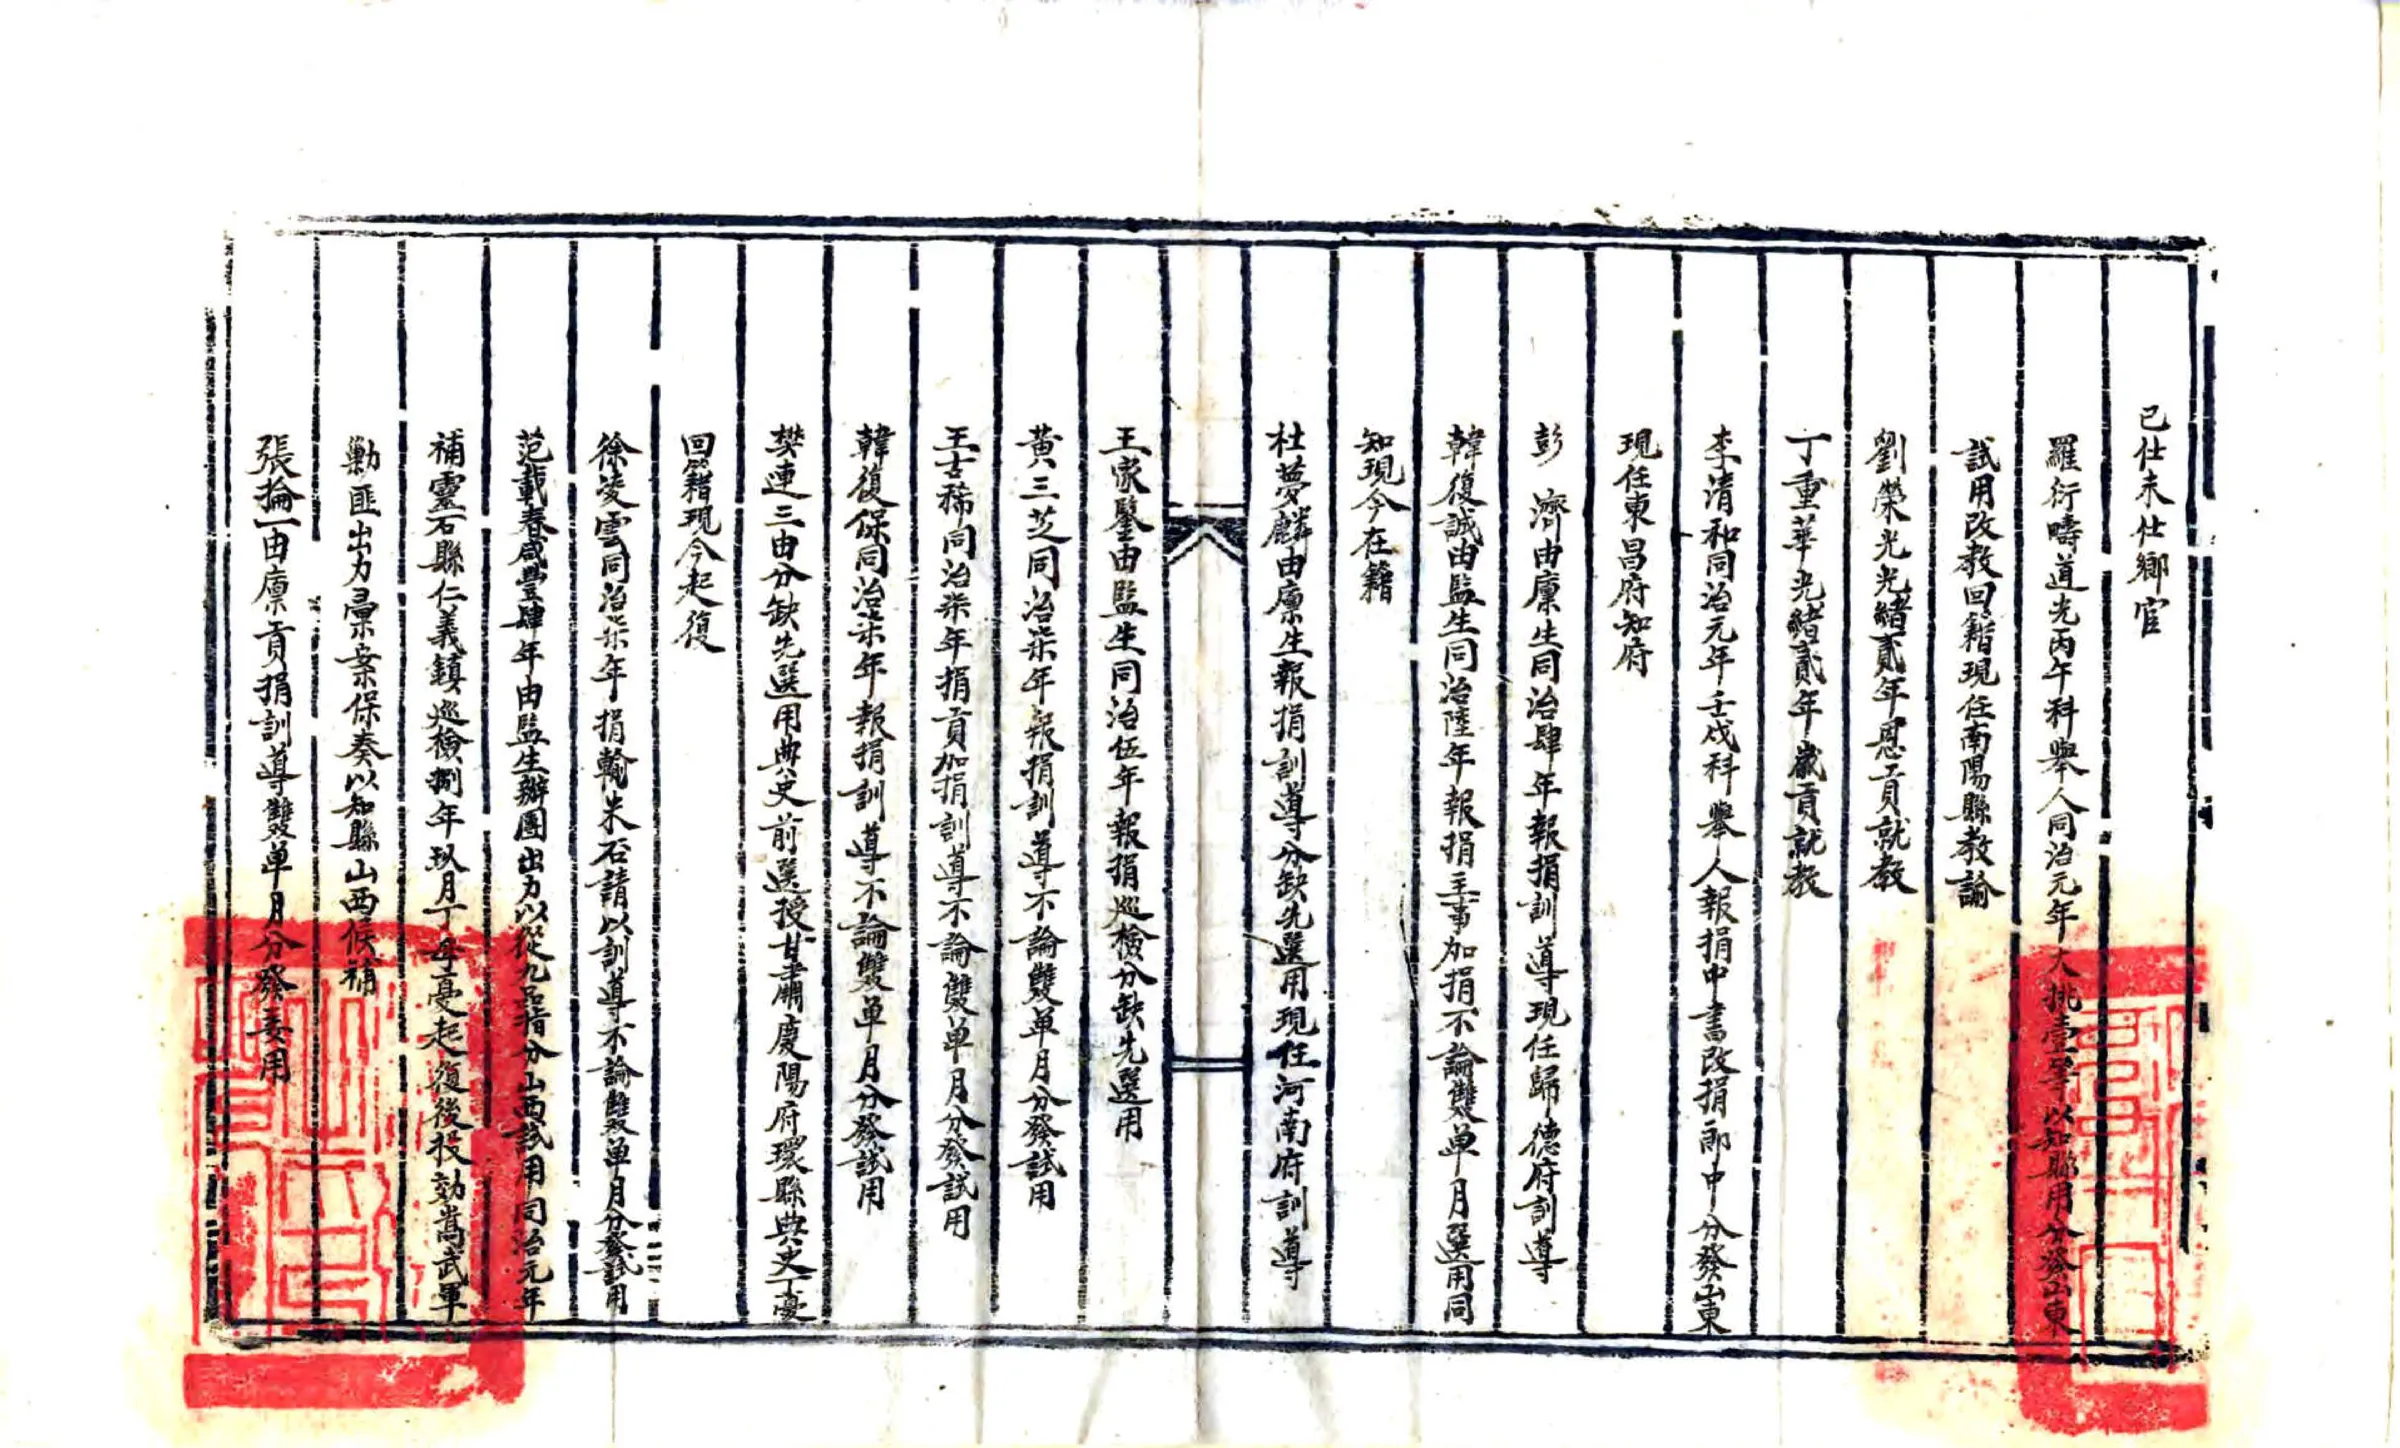 已仕未仕鄉官
羅衍疇道光丙午科舉人同治元年大挑壹等以知縣用分發山東
試用改教回籍現任南陽縣教諭
劉榮光光緒貳年恩貢就教
丁重華光緒貳年歲貢就教
李清和同治元年壬戌科舉人報捐中書改捐郎中分發山東
現任東昌府知府
彭濟由廩生同治肆年報捐訓導現任歸德府訓導
韓復誠由監生同治陸年報捐主事加捐不論雙单月選用同
知現今在籍
杜夢麟由廩生報捐訓導分缺先選用現任河南府訓導
王家鑒由監生同治伍年報捐巡檢分缺先選用
黃三芝同治柒年報捐訓導不論雙单月分發試用
王吉稀同治柒年捐貢加捐訓導不論雙单月分發試用
韓復保同治柒年報捐訓導不論雙单月分發試用
樊連三由分缺先選用典史前選授甘肅慶陽府環縣典史丁憂
回籍現今起復
徐凌雲同治柒年捐輸米石請以訓導不論雙单月分發試用
范載春咸豐肆年由監生辦團出力以從九品指分山西試用同治元年
補靈石縣仁義鎮巡檢捌年玖月丁母憂起復後投効嵩武軍
勦匪出力彙案保奏以知縣山西候補
張掄一由廩貢捐訓導雙单月分發委用